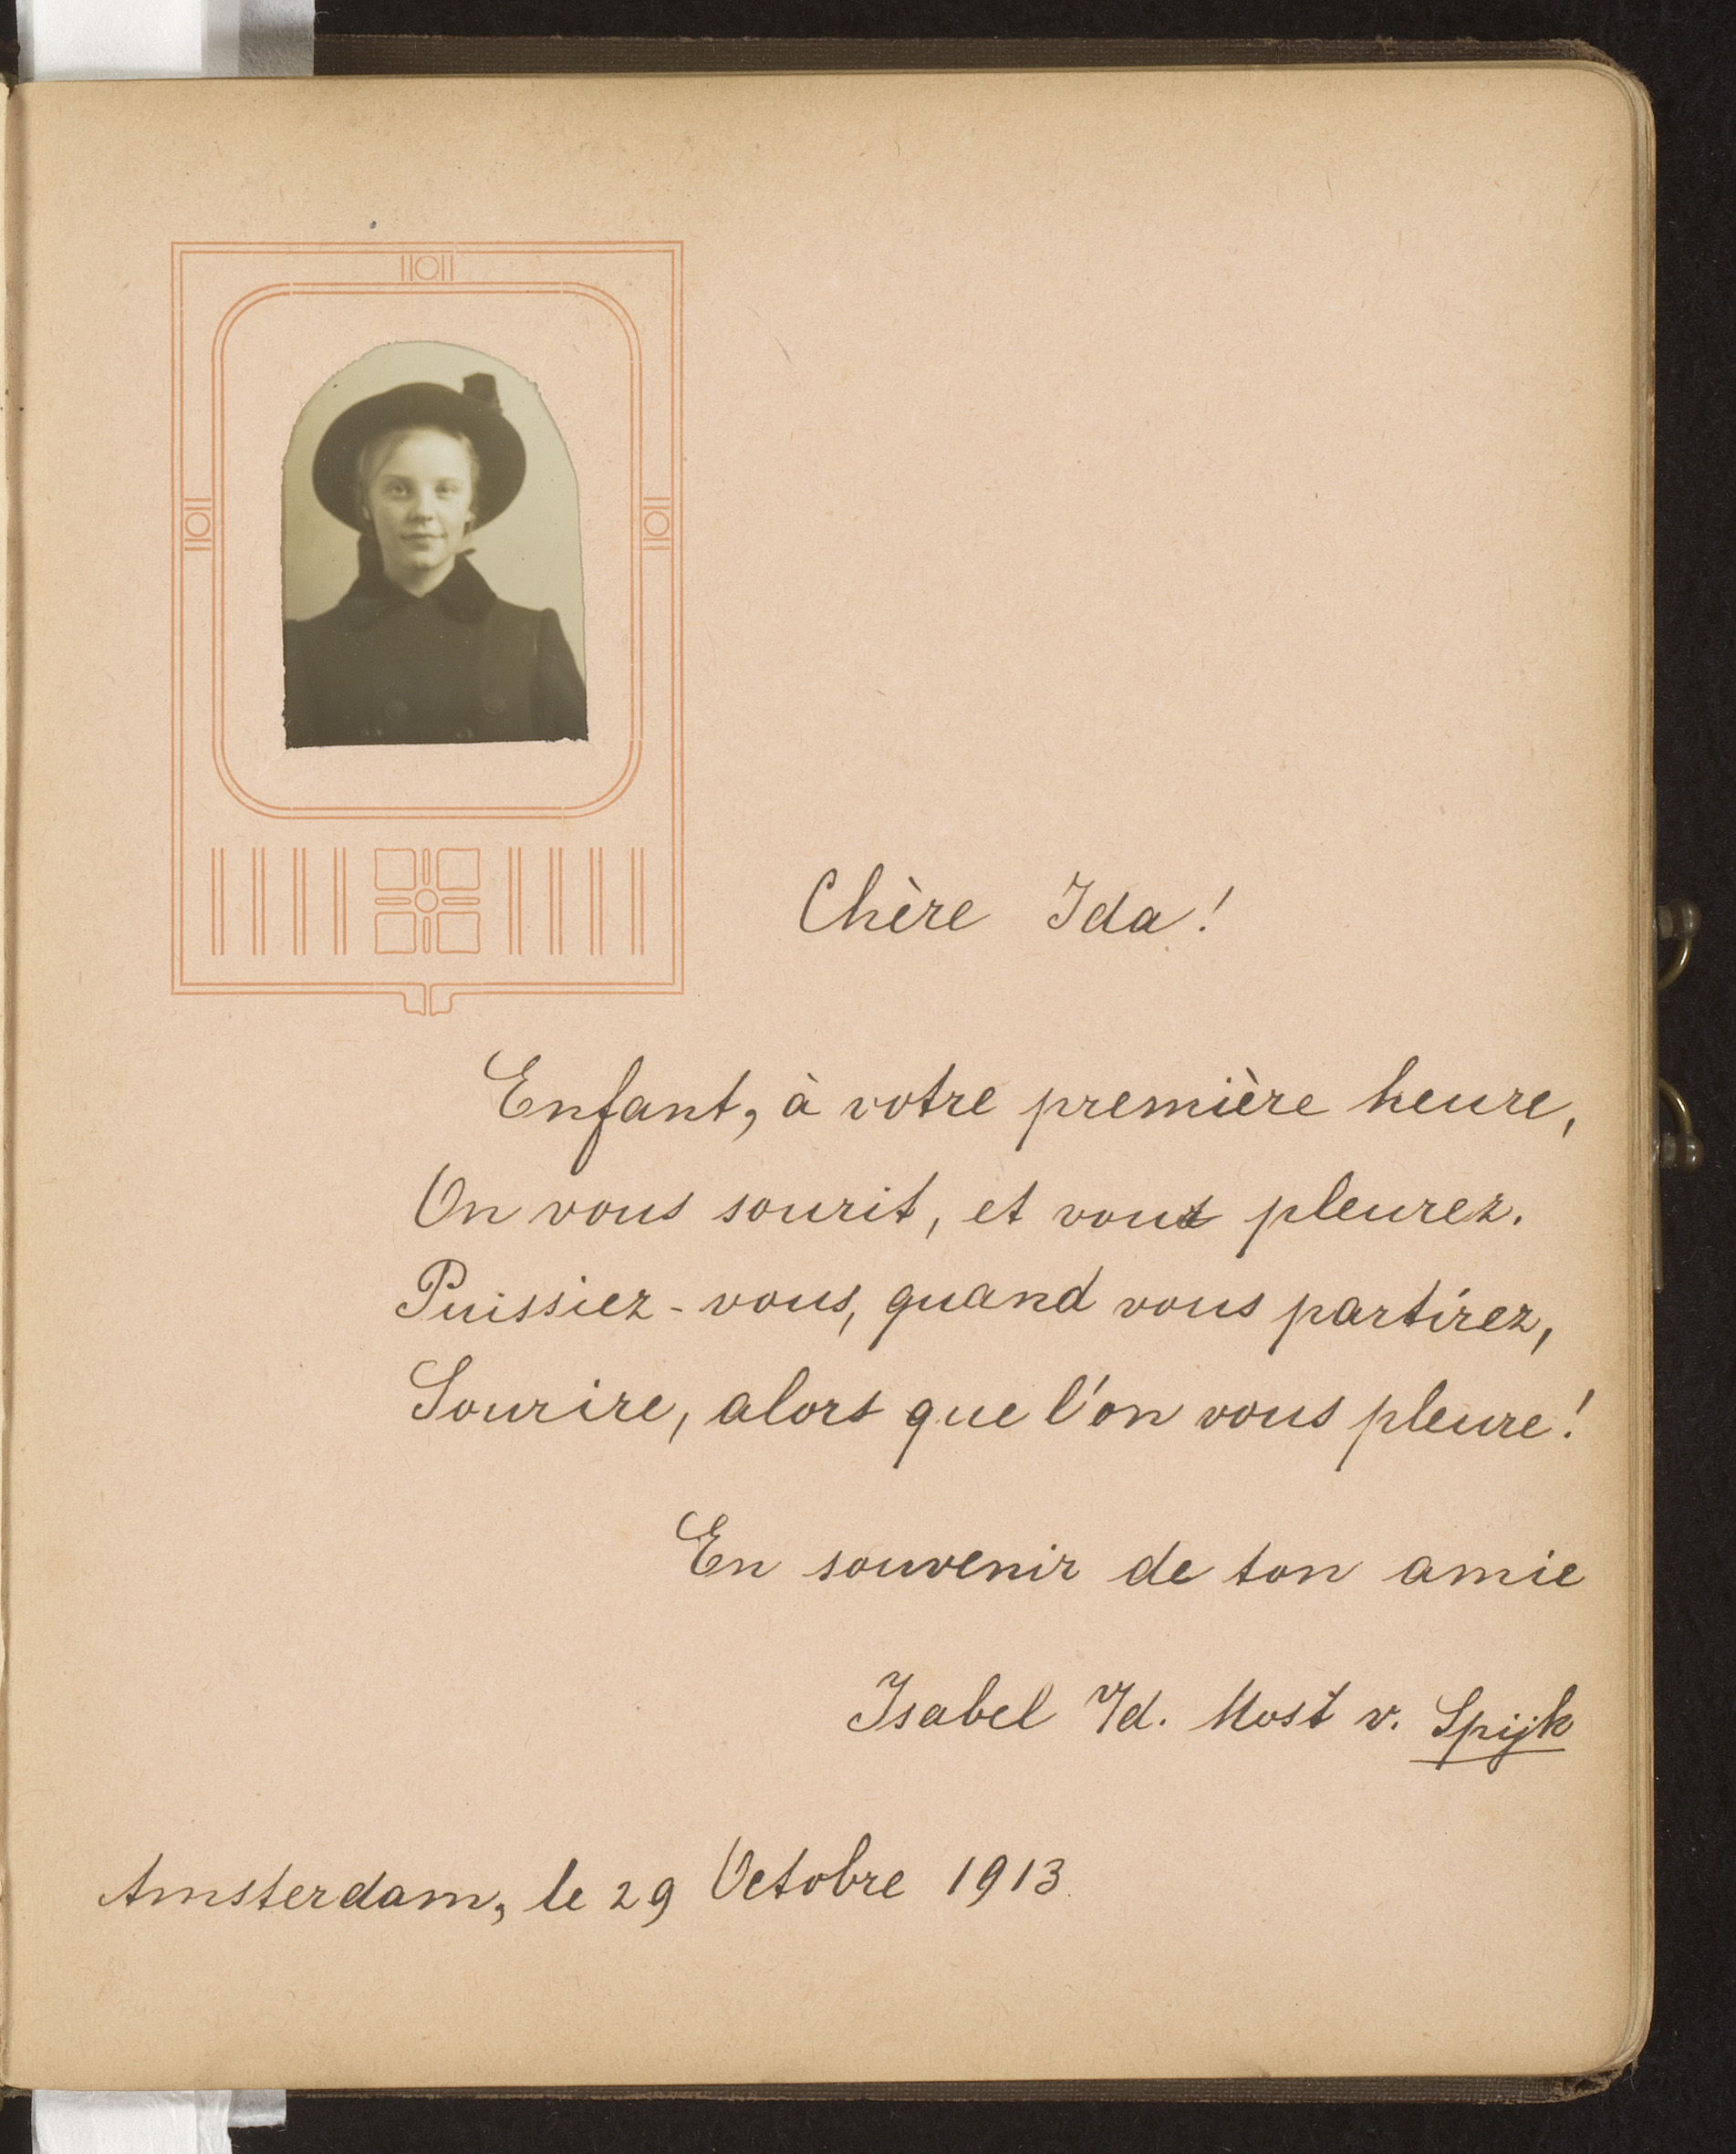 Chère Ida!
Enfant, à votre première heure,
On vous sourit, et vous pleurez.
Puissiez-vous, quand vous partirez,
Sourire, alors que l'on vous pleure!
En souvenir de ton amie
Isabel Id. Most v. Spijk
Amsterdam, le 29 Octobre 1913.